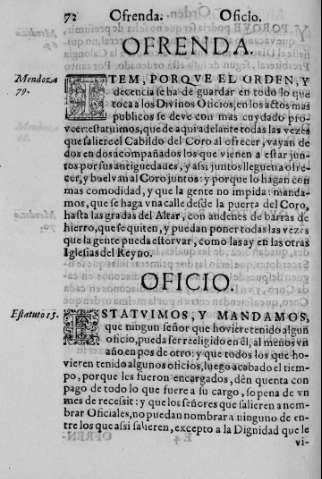 72 Ofrenda. Oficio.
OFRENDA.
Mendoza
79.
ITEM, PORQVE EL ORDEN, Y
decencia se ha de guardar en todo lo que
toca a los Divinos Oficios, en los actos mas
publicos se deve con mas cuydado pro-
veer: estatuimos, que de aqui adelante todas las vezes
que saliere el Cabildo del Coro al ofrecer, vayan de
dos en dos acompañados los que vienen a estar jun-
tos por sus antiguedades, y assi juntos lleguen a ofre-
cer, y buelvan al Coro juntos: y porque lo hagan con
mas comodidad, y que la gente no impida: manda-
mos, que se haga vna calle desde la puerta del Coro,
hasta las gradas del Altar, con andenes de barras de
hierro, que se quiten, y puedan poner todas las vezes
que la gente pueda estorvar, como las ay en las otras
Iglesias del Reyno.
OFICIO.
Estatuto 15.
ESTATVIMOS, Y MANDAMOS,
que ningun señor que hoviere tenido algun
oficio, pueda ser reeligido en él, al menos vn
año en pos de otro: y que todos los que ho-
vieren tenido algunos oficios, luego acabado el tiem-
po, porque les fueron encargados, dèn quenta con
pago de todo lo que fuere a su cargo, so pena de vn
mes de recessit: y que los señores que salieren a nom-
brar Oficiales, no puedan nombrar a ninguno de en-
tre los que assi salieren, excepto a la Dignidad que le
vi-